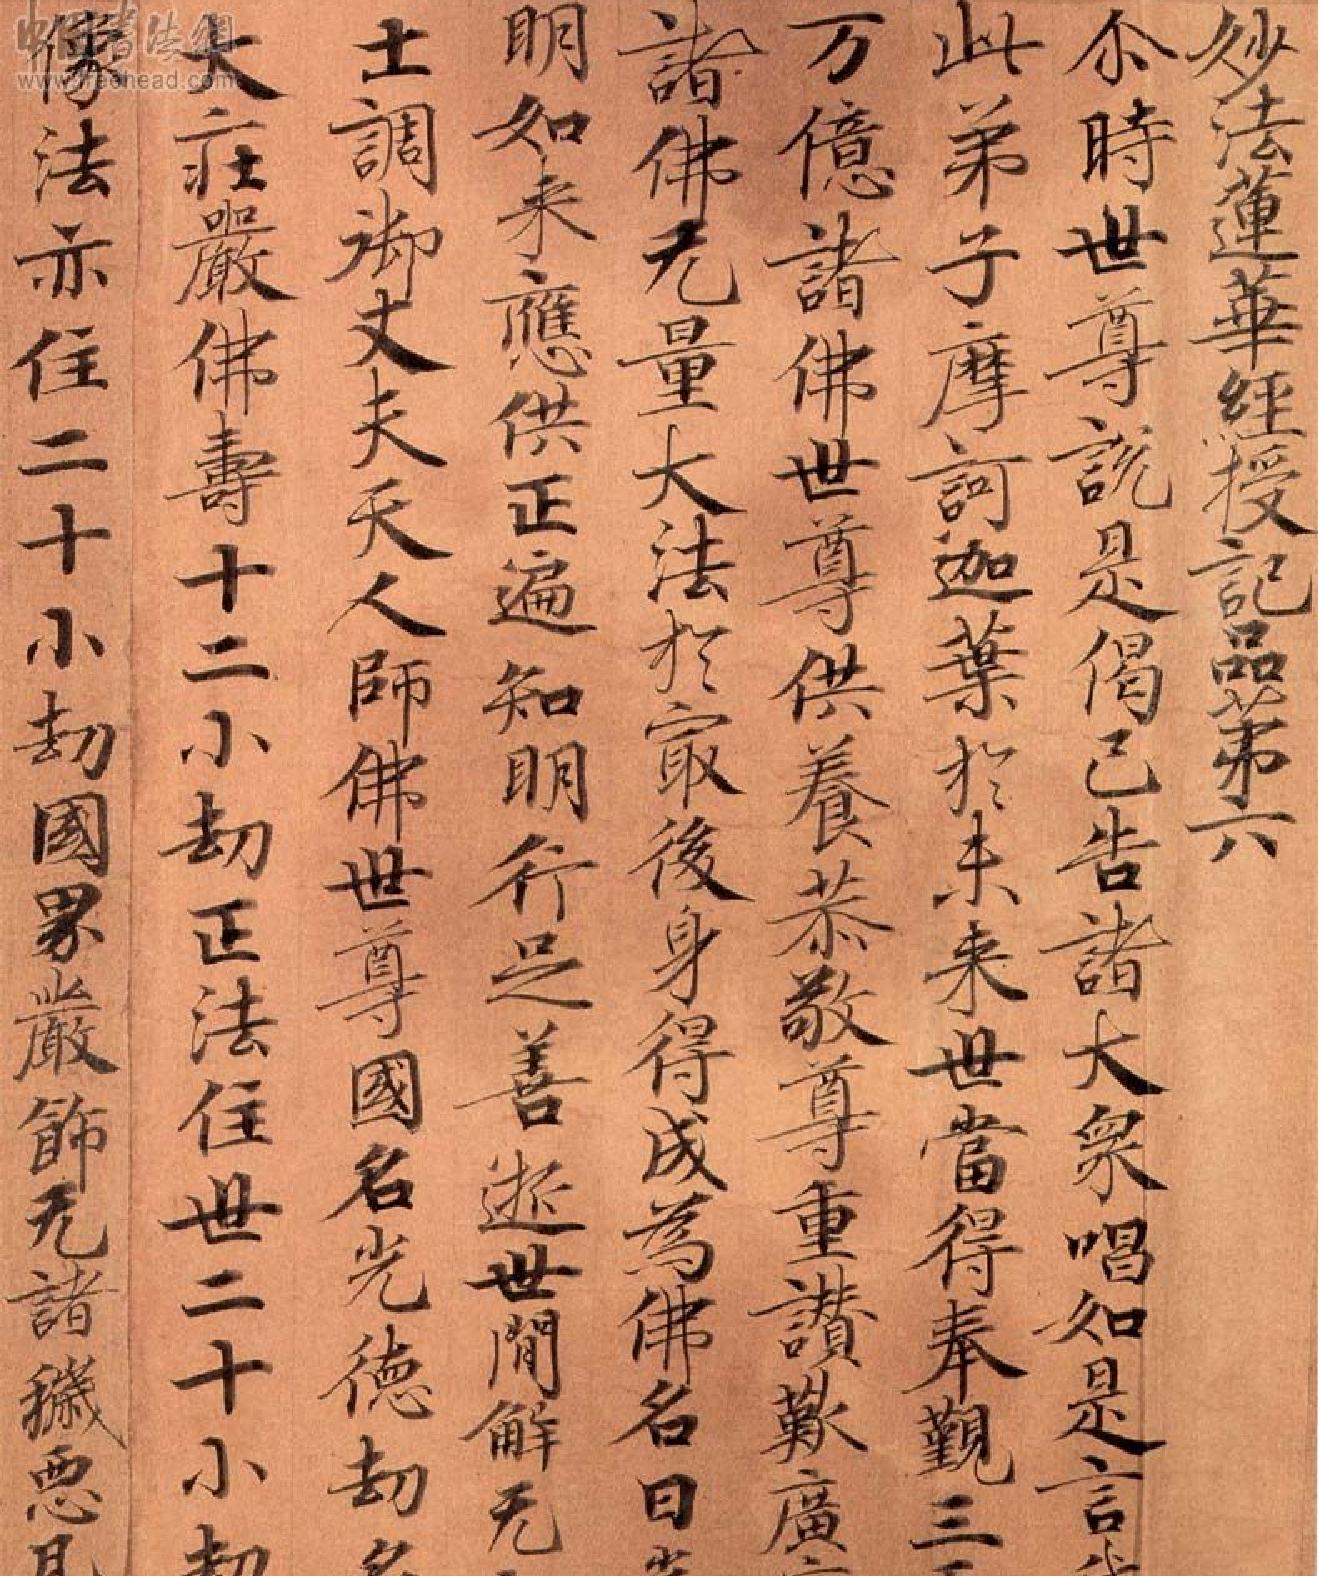 妙法蓮華經授記品第六
尒時世尊說是偈已告諸大衆唱如是言
此弟子摩訶迦葉於未来世當得奉覲三
万億諸佛世尊供養恭敬尊重讃歎廣
諸佛无量大法於冣後身得成為佛名曰
明如来應供正遍知明行足善逝世間解无
士調御丈夫天人師佛世尊國名光德劫名
大莊嚴佛壽十二小劫正法住世二十小劫
像法亦住二十小劫國界嚴飾无諸穢惡
中国书法網
www.freehead.com